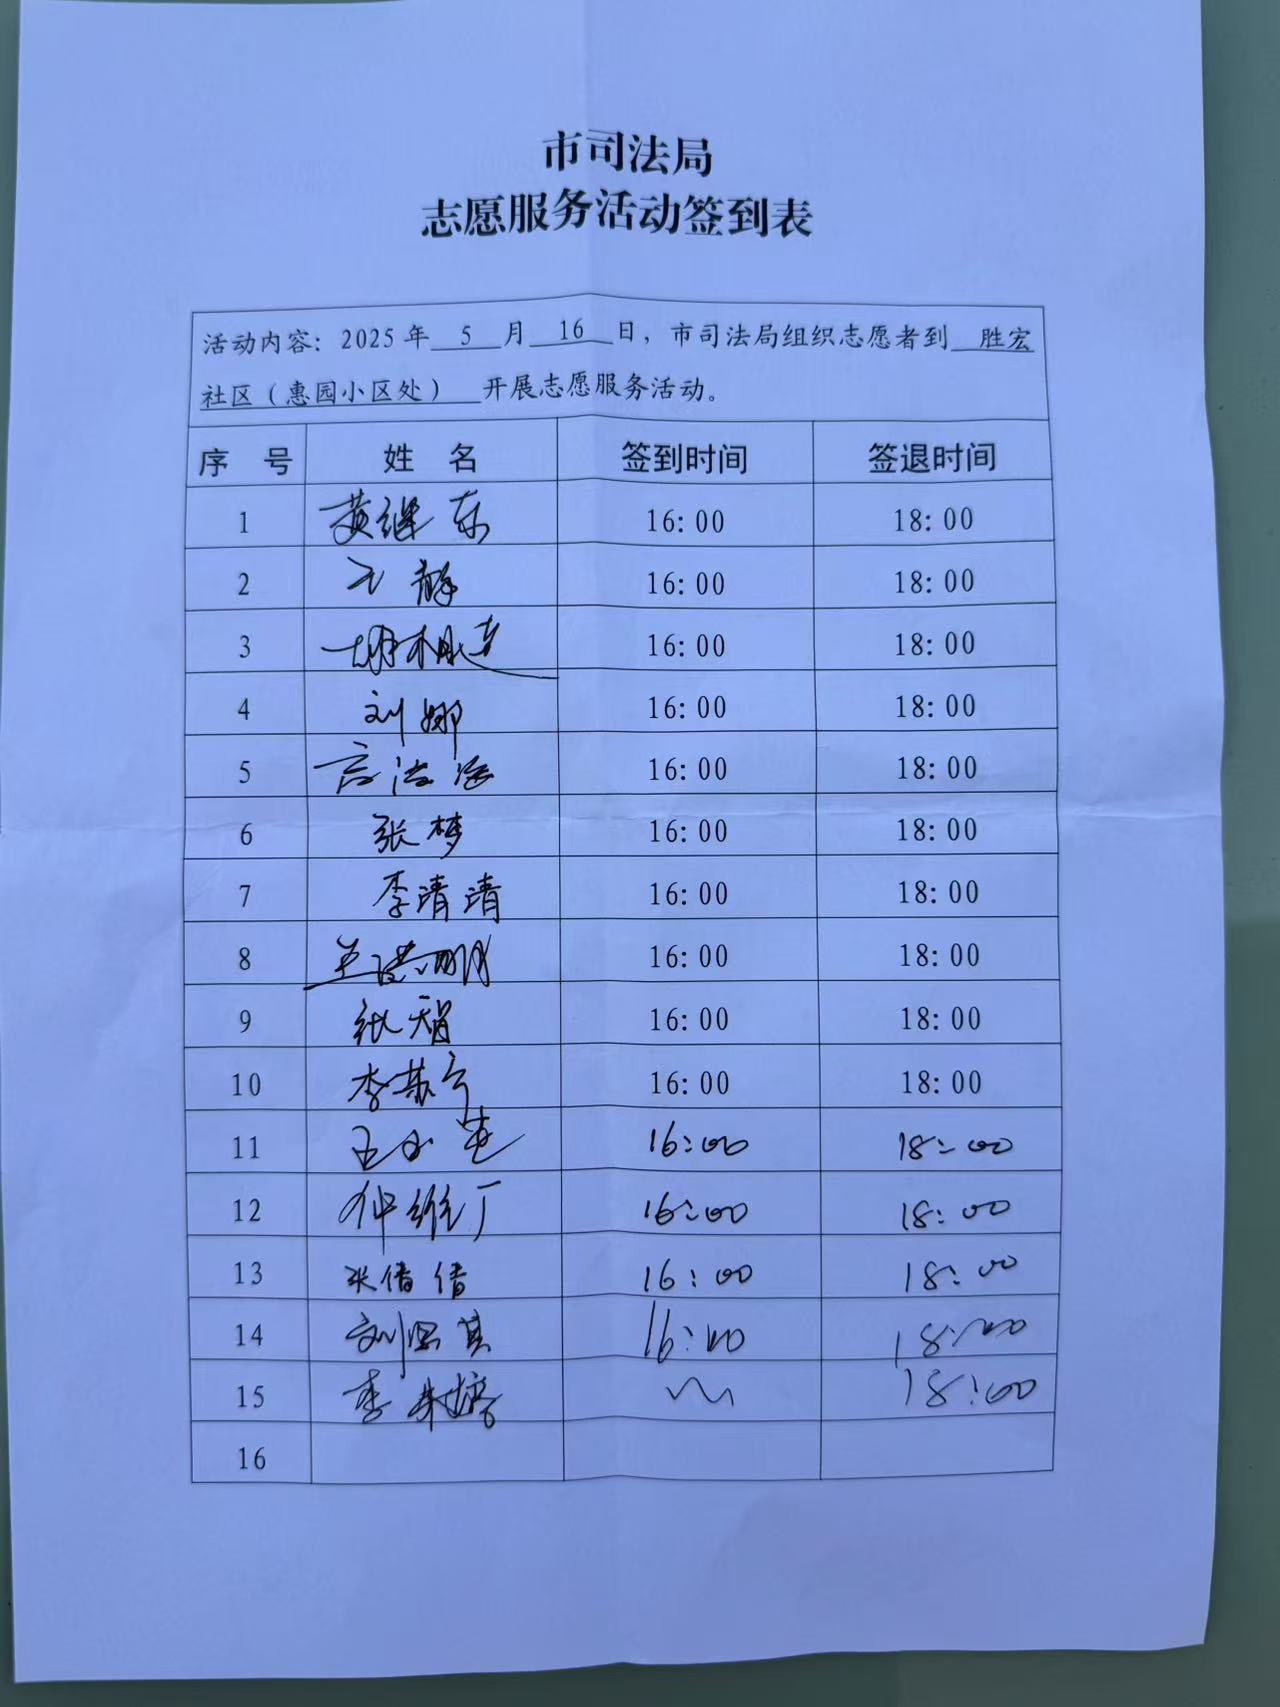 市司法局
志愿服务活动签到表
活动内容：2025年 5 月 16 日，市司法局组织志愿者到 胜宏
社区（惠园小区处） 开展志愿服务活动。
序 号 姓 名 签到时间 签退时间
1 黄继东 16:00 18:00
2 王静 16:00 18:00
3 16:00 18:00
4 刘娜 16:00 18:00
5 16:00 18:00
6 张梦 16:00 18:00
7 李清清 16:00 18:00
8 16:00 18:00
9 张智 16:00 18:00
10 李燕宁 16:00 18:00
11 16:00 18:00
12 仲维广 16:00 18:00
13 张倩倩 16:00 18:00
14 16:00 18:00
15 18:00
16